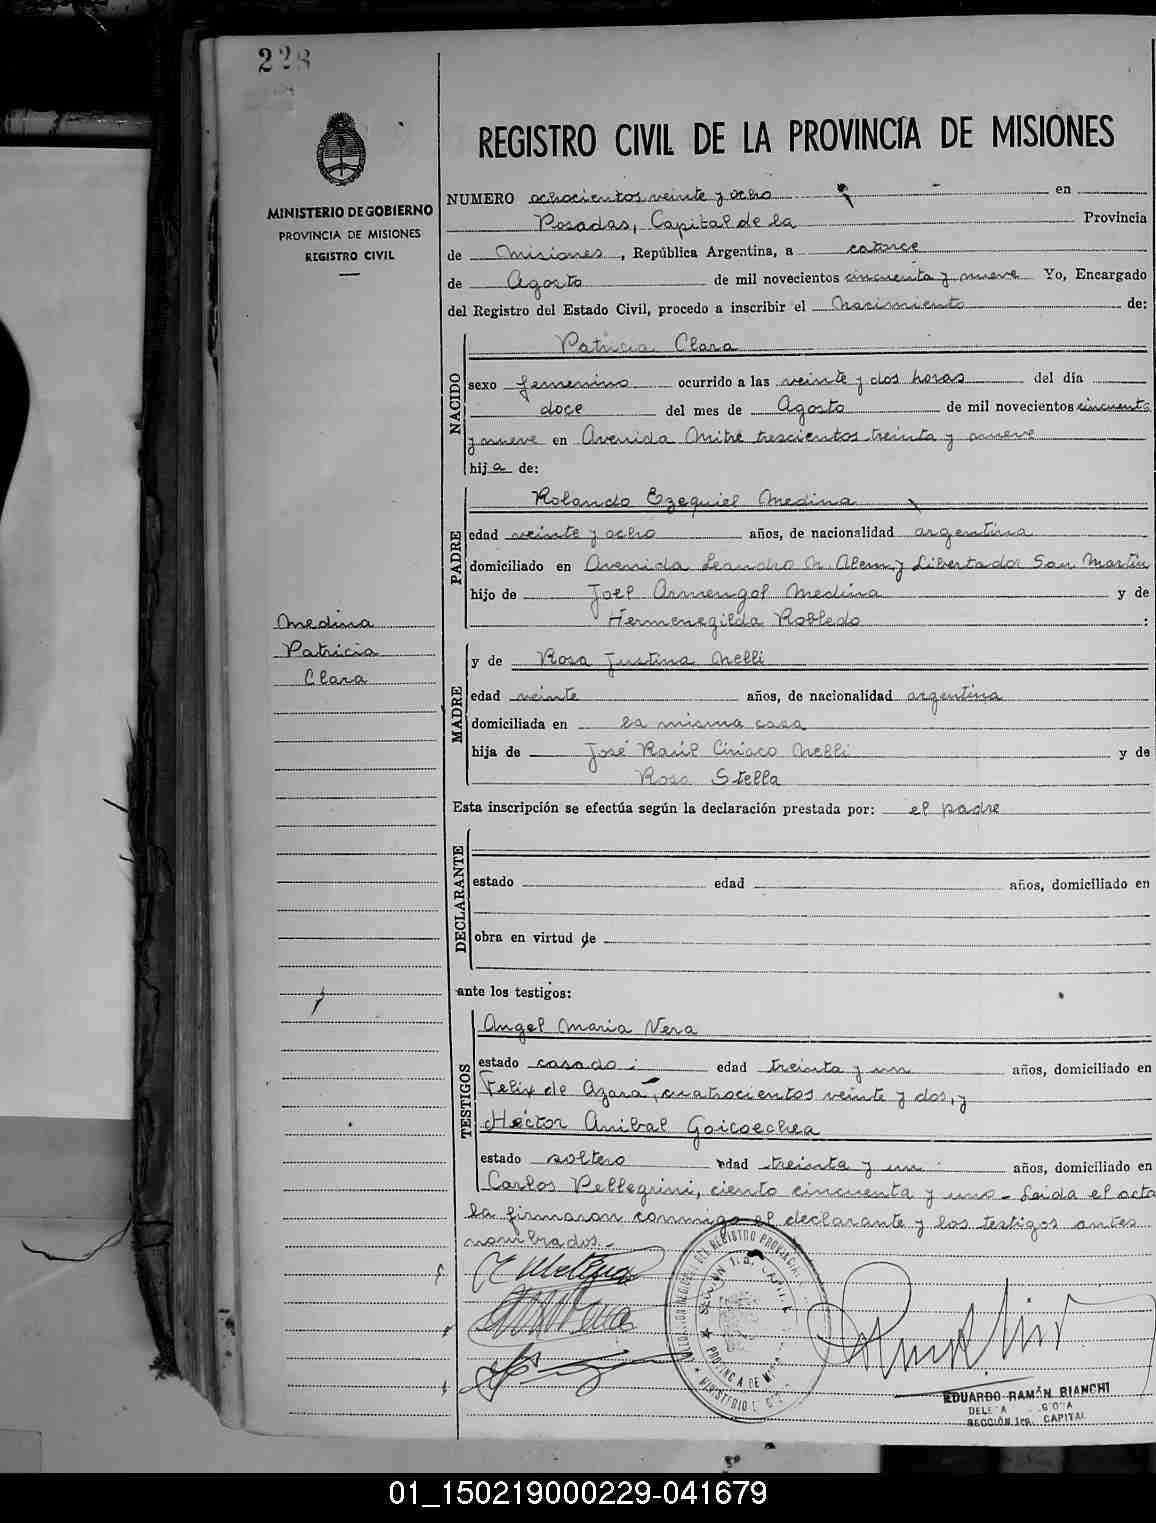 228
MINISTERIO DE GOBIERNO
PROVINCIA DE MISIONES
REGISTRO CIVIL
Medina
Patricia
Clara
REGISTRO CIVIL DE LA PROVINCIA DE MISIONES
NUMERO ochocientos veinte y ocho en
Posadas, Capital de la Provincia
de Misiones, República Argentina, a catorce
de Agosto de mil novecientos cincuenta y nueve Yo, Encargado
del Registro del Estado Civil, procedo a inscribir el Nacimiento de:
NACIDO
Patricia Clara
sexo femenino ocurrido a las veinte y dos horas del día
doce del mes de Agosto de mil novecientos cincuenta
y nueve en Avenida Mitre trescientos treinta y nueve
hija de:
PADRE
Rolando Ezequiel Medina
edad veinte y ocho años, de nacionalidad argentina
domiciliado en Avenida Leandro N. Alem y Libertador San Martín
hijo de Joel Armengol Medina y de
Hermenegilda Robledo :
MADRE
y de Rosa Justina Nelli
edad veinte años, de nacionalidad argentina
domiciliada en la misma casa
hija de José Raúl Ciriaco Nelli y de
Rosa Stella
Esta inscripción se efectúa según la declaración prestada por: el padre
DECLARANTE
estado edad años, domiciliado en
obra en virtud de
ante los testigos:
TESTIGOS
Angel Maria Vera
estado casado : edad treinta y un años, domiciliado en
Felix de Azara, cuatrocientos veinte y dos, y
Héctor Anibal Goicoechea
estado soltero edad treinta y un años, domiciliado en
Carlos Pellegrini, ciento cincuenta y uno - Leida el acta
la firmaron conmigo el declarante y los testigos antes
nombrados.-
EDUARDO RAMÓN BIANCHI
SECCIÓN 1ra. CAPITAL
01_150219000229-041679